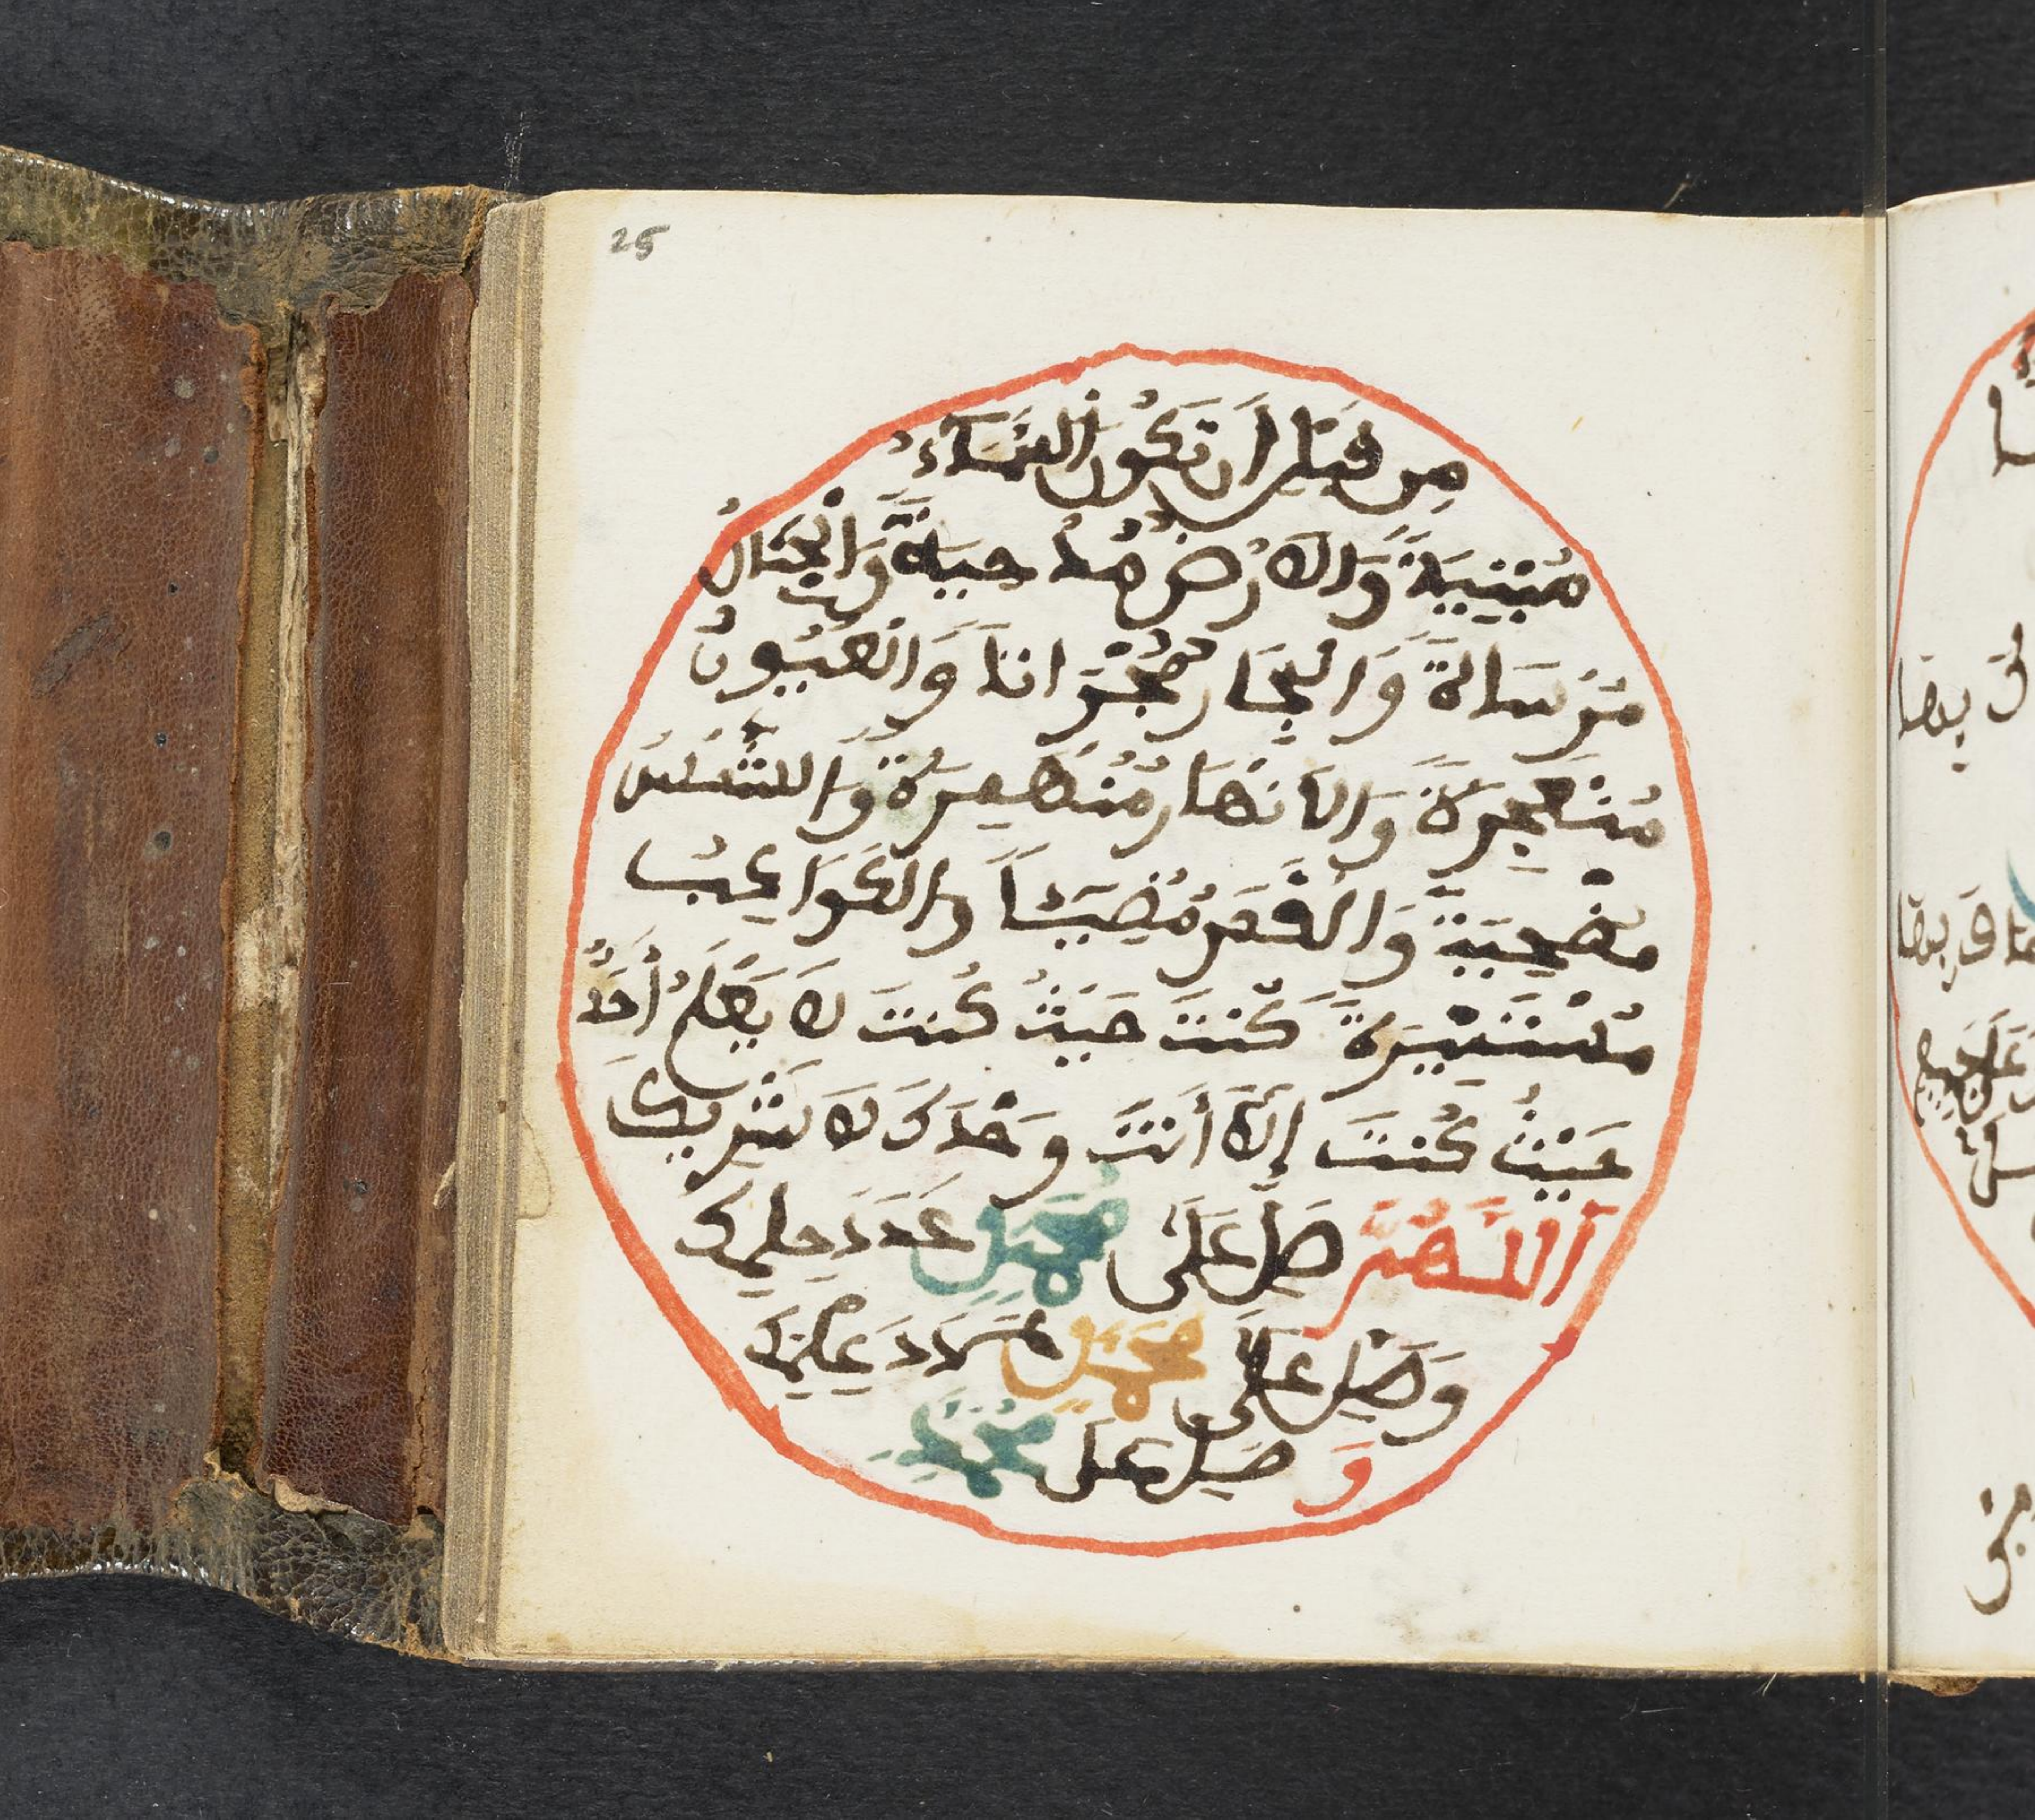 25
مِن قَبْلِ اَن تَكُونَ السَّمَاءُ
مَبْنِيَةً وَالاَرْضُ مَدْحِيَةً وَالْجِبَالُ
مُرْسَالةً وَالْبِحَارُ مُجْرَاناً وَالْعُيُونُ
مُنْفَجِرَةً وَالاَنْهَارُ مُنْهَمِرَةً وَالشَّمْسُ
مُضْحِيَةً وَالْقَمَرُ مُضِيئاً وَالكَوَاكِبُ
مُسْتَنِيْرَةً كُنْتَ حَيْثُ كُنتَ لاَ يَعْلَمُ أَحَدٌ
حَيْثُ كُنتَ إِلاَّ أَنتَ وَحْدَكَ لاَ شَرِيكَ
اَللَّهُمَّ صَلِّ عَلَى مُحَمَّدٍ عَدَدَ حِلمِكَ
وَصَلِّ عَلَى مُحَمَّدٍ عَدَدَ عِلمِكَ
وَ صَلِّ عَلَى مُحَمَّدٍ